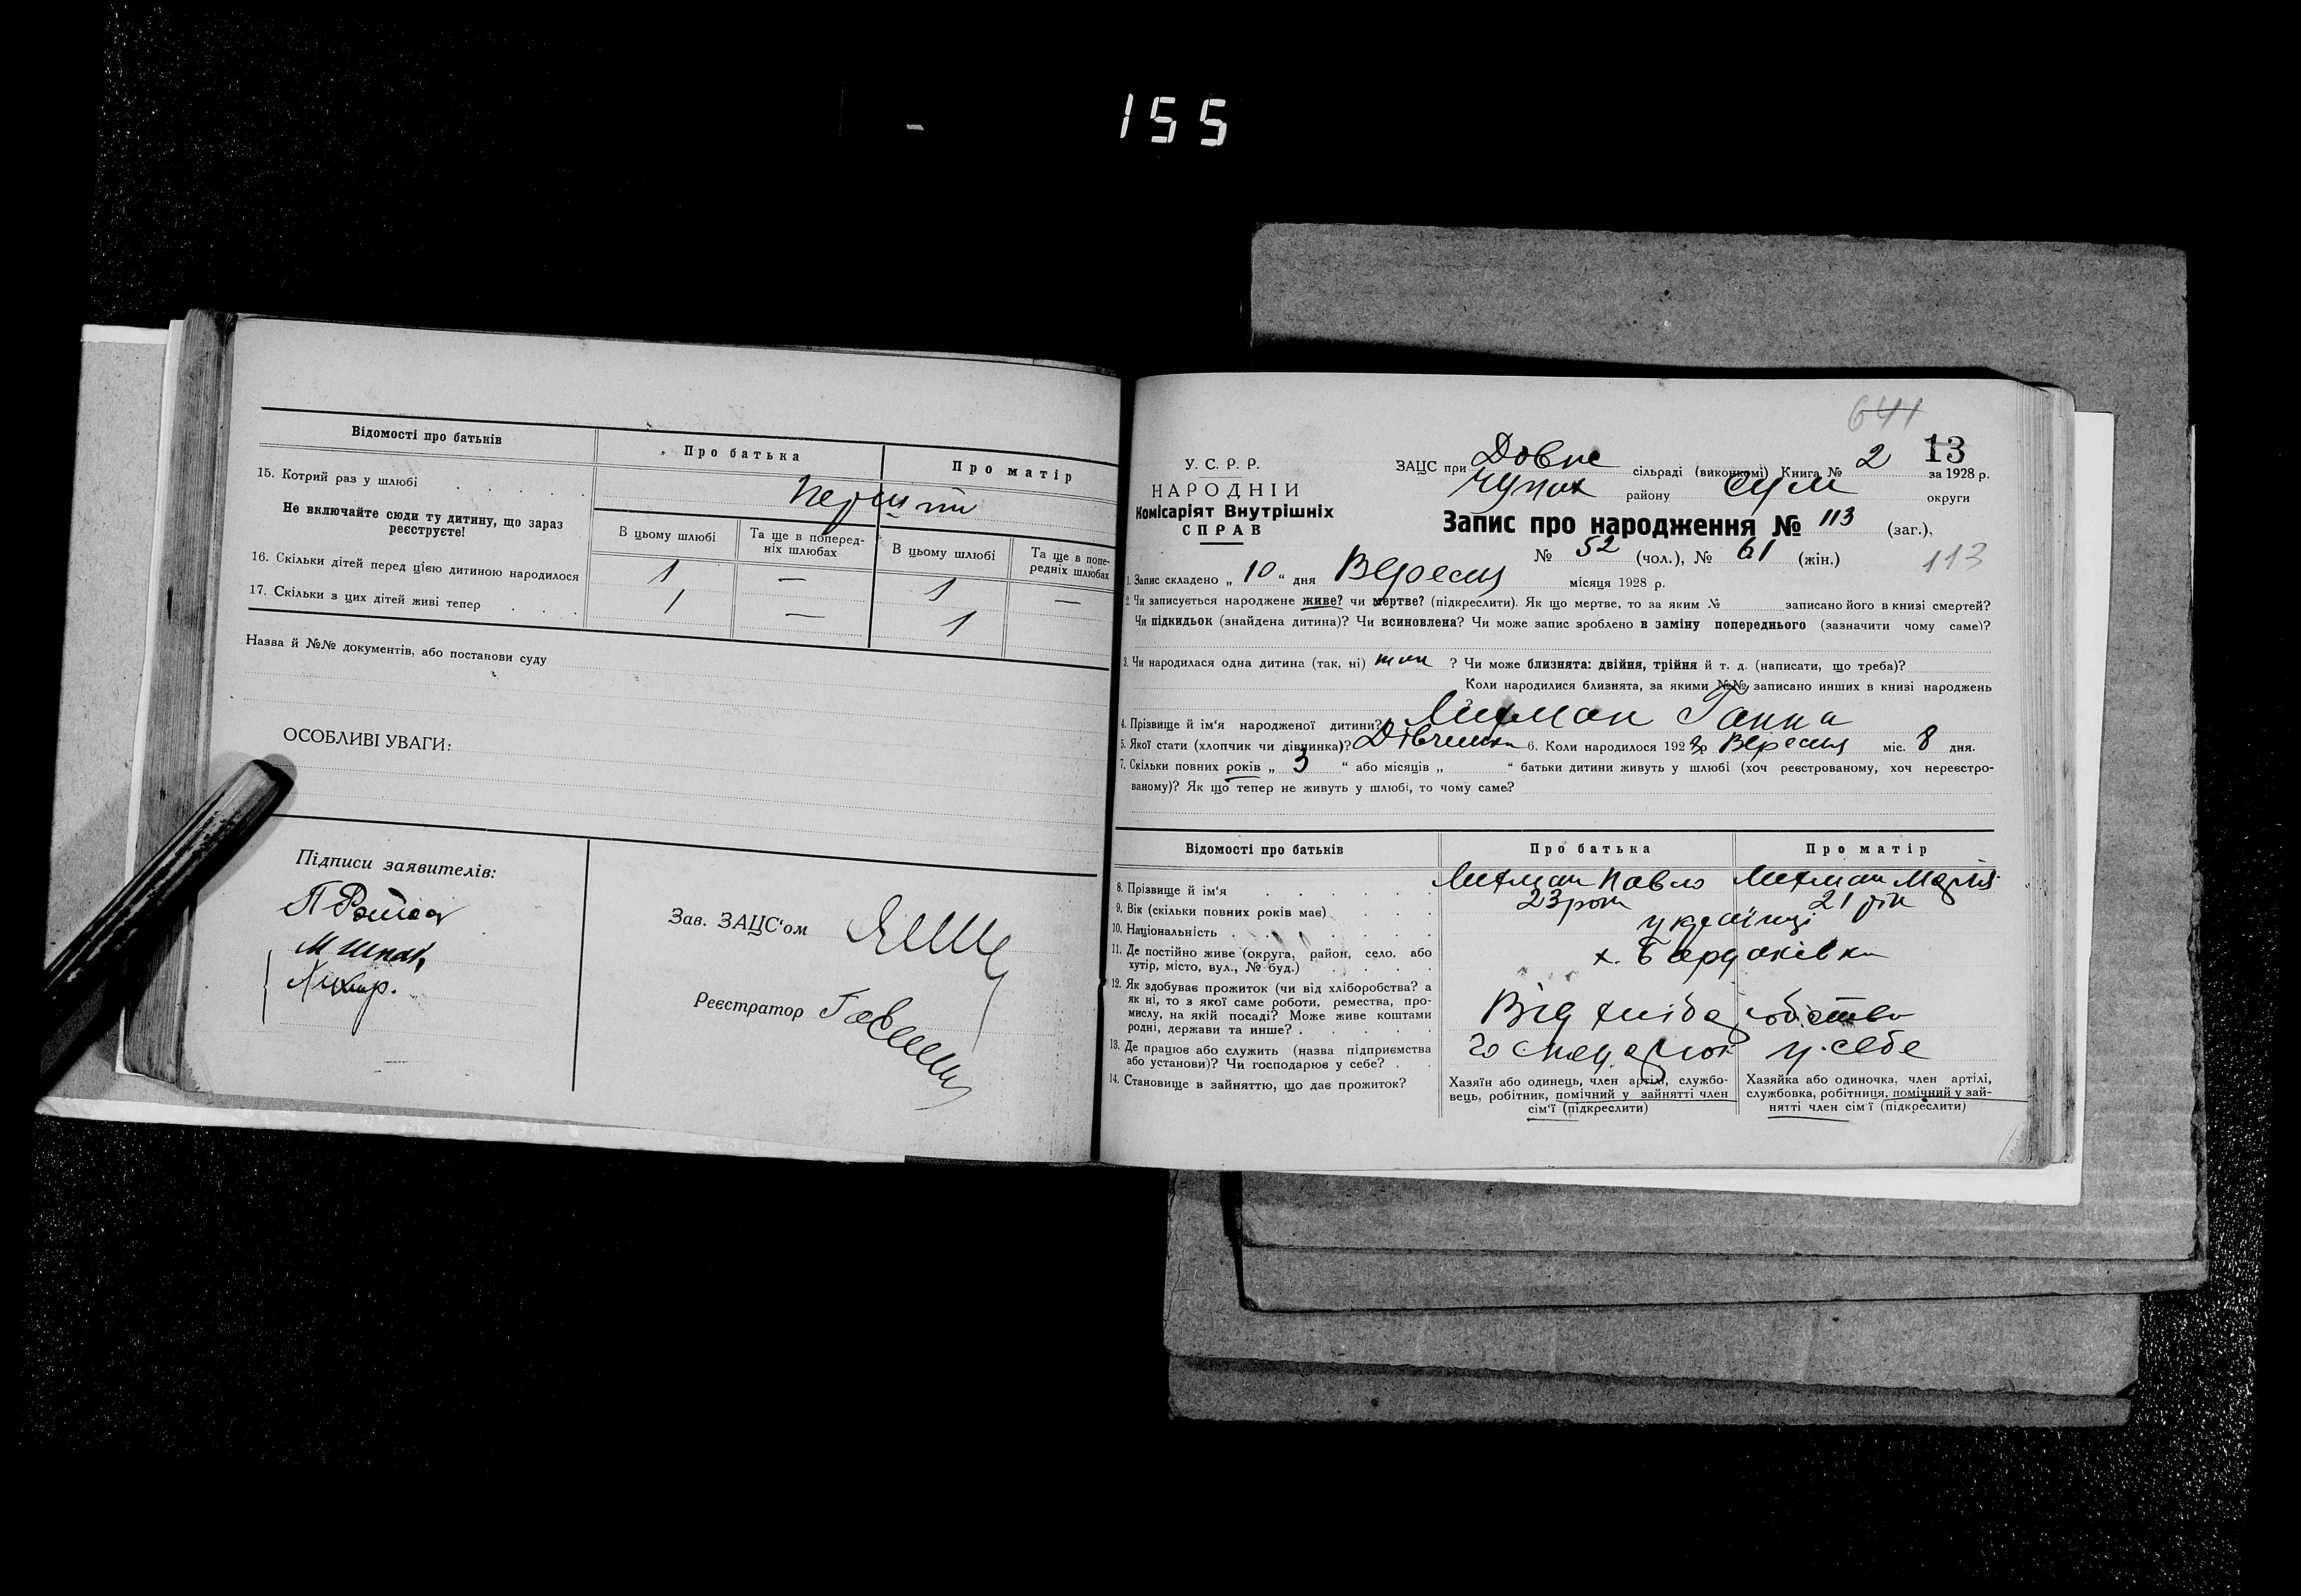 155
Відомості про батьків
Про батька
Про матір
15. Котрий раз у шлюбі
перший
Не включайте сюди ту дитину, що зараз реєструєте!
В цьому шлюбі
Та ще в поперед-
ніх шлюбах
В цьому шлюбі
Та ще в попе-
редніх шлюбах
16. Скільки дітей перед цією дитиною народилося 1 — 1 —
17. Скільки з цих дітей живі тепер 1 — 1
Назва й №№ документів, або постанови суду
ОСОБЛИВІ УВАГИ:
Підписи заявителів:
Зав. ЗАЦС'ом
Реєстратор
641
13
У. С. Р. Р.
НАРОДНІЙ
Комісаріят Внутрішніх
СПРАВ
ЗАЦС при сільраді (виконкомі) Книга № 2 за 1928 р.
району Сум округи
Запис про народження № 113 (заг.),
№ 52 (чол.), № 61 (жін.)
113
1. Запис складено „ 10 “ дня Вересня місяця 1928 р.
2. Чи записується народжене живе? чи мертве? (підкреслити). Як що мертве, то за яким № записано його в книзі смертей?
Чи підкидьок (знайдена дитина)? Чи всиновлена? Чи може запис зроблено в заміну попереднього (зазначити чому саме)?
3. Чи народилася одна дитина (так, ні) так ? Чи може близнята: двійня, трійня й т. д. (написати, що треба)?
Коли народилися близнята, за якими №№ записано инших в книзі народжень
4. Прізвище й ім'я народженої дитини? Лихман Ганна
5. Якої стати (хлопчик чи дівчинка)? Дівчинка 6. Коли народилося 1928 р Вересня міс. 8 дня.
7. Скільки повних років „ 3 “ або місяців „ “ батьки дитини живуть у шлюбі (хоч реєстрованому, хоч нереєстро-
ваному)? Як що тепер не живуть у шлюбі, то чому саме?
Відомості про батьків
Про батька
Про матір
8. Прізвище й ім'я Лихман Павло Лихман Марія
9. Вік (скільки повних років має) 23 21
10. Національність українці
11. Де постійно живе (округа, район, село, або
хутір, місто, вул., № буд.) х. Бардаківка
12. Як здобуває прожиток (чи від хліборобства? а
як ні, то з якої саме роботи, ремества, про-
мислу, на якій посаді? Може живе коштами
родні, держави та инше? Від хліборобства
13. Де працює або служить (назва підприємства
або установи)? Чи господарює у себе? господарює у себе
14. Становище в зайняттю, що дає прожиток?
Хазяїн або одинець, член артілі, службо-
вець, робітник, помічний у зайнятті член
сім'ї (підкреслити)
Хазяйка або одиночка, член артілі,
службовка, робітниця, помічний у зай-
нятті член сім'ї (підкреслити)